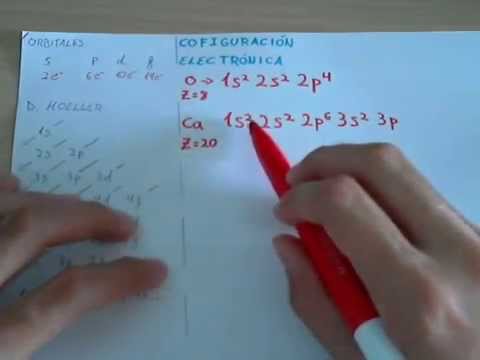 ORBITALES
S P d g
2e⁻ 6e⁻ 10e⁻ 14e⁻
D. MOELLER
1s
2s 2p
3d
4d 4g
COFIGURACIÓN
ELECTRÓNICA
O → 1s² 2s² 2p⁴
Z=8
Ca 1s² 2s² 2p⁶ 3s² 3p
Z=20